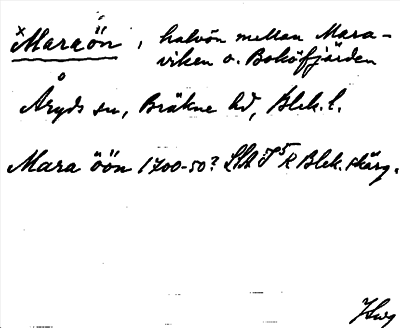 ×Maraön, halvön mellan Mara-
viken o. Boköfjärden
Åryds sn, Bräkne hd, Blek. l.
Mara öön 1700-50? LSA I5R Blek. skärg.